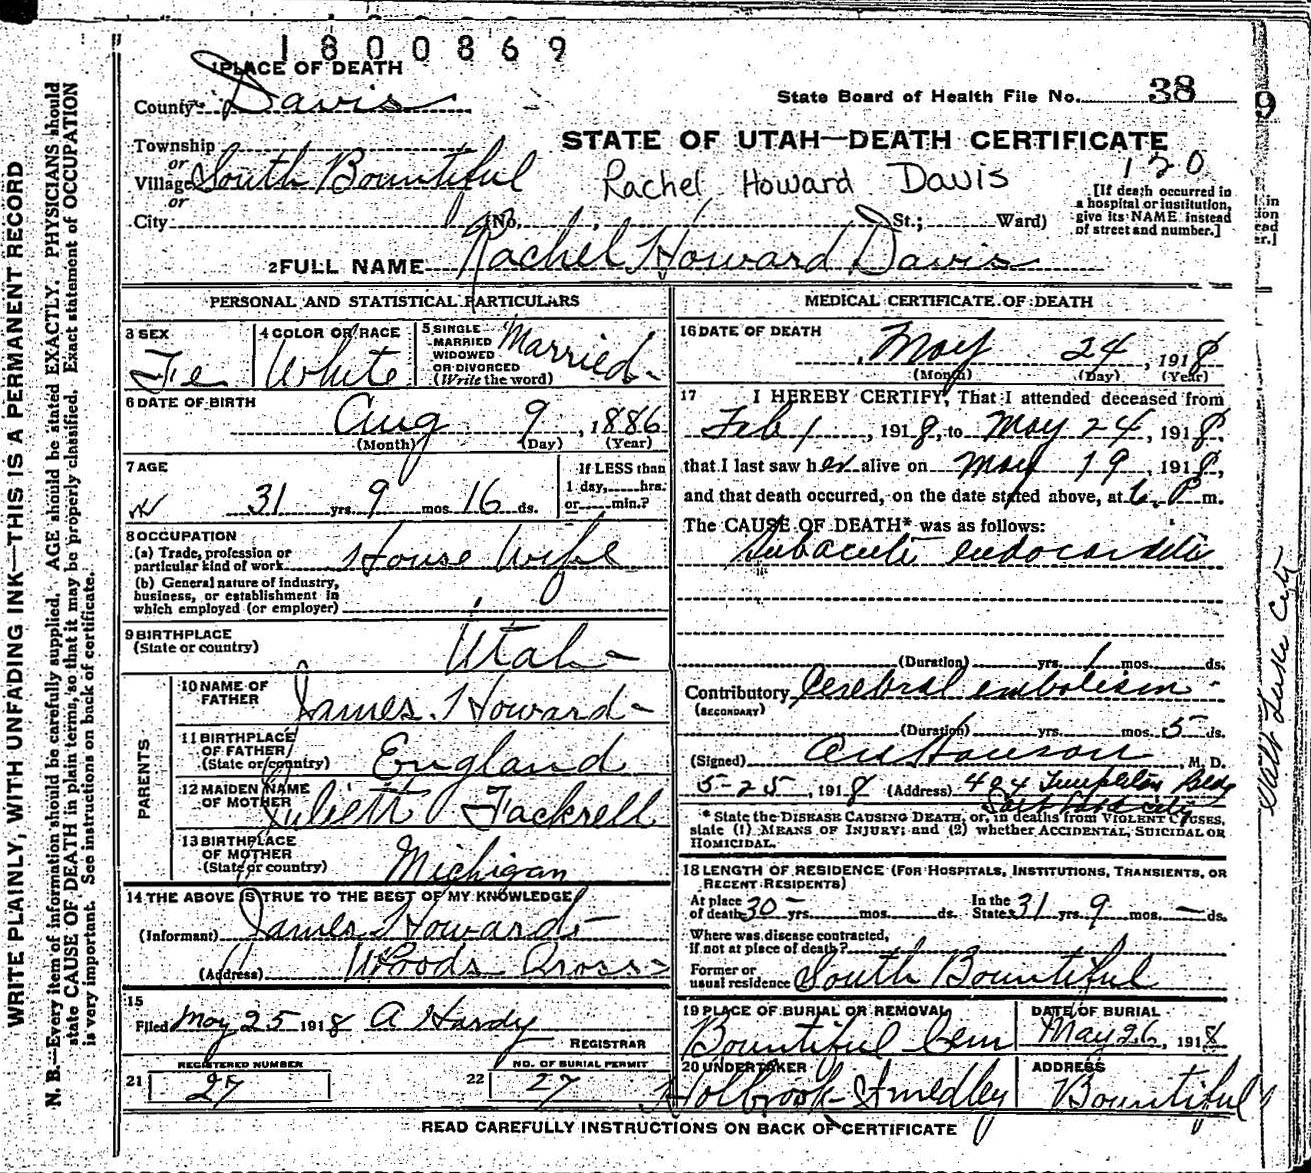 1800869
1 PLACE OF DEATH
County Davis
State Board of Health File No. 38
Township
or
Village South Bountiful
or
City (No. St.; Ward)
STATE OF UTAH—DEATH CERTIFICATE
120
Rachel Howard Davis
[If death occurred in
a hospital or institution,
give its NAME instead
of street and number.]
2 FULL NAME Rachel Howard Davis
PERSONAL AND STATISTICAL PARTICULARS
3 SEX
Fe
4 COLOR OR RACE
White
5 SINGLE
MARRIED
WIDOWED
OR DIVORCED
(Write the word)
Married
6 DATE OF BIRTH
Aug 9, 1886
(Month) (Day) (Year)
7 AGE
31 yrs. 9 mos. 16 ds.
If LESS than
1 day, hrs.
or min.?
8 OCCUPATION
(a) Trade, profession or
particular kind of work House Wife
(b) General nature of industry,
business, or establishment in
which employed (or employer)
9 BIRTHPLACE
(State or country) Utah
PARENTS
10 NAME OF
FATHER James Howard
11 BIRTHPLACE
OF FATHER
(State or country) England
12 MAIDEN NAME
OF MOTHER Juliett Fackrell
13 BIRTHPLACE
OF MOTHER
(State or country) Michigan
14 THE ABOVE IS TRUE TO THE BEST OF MY KNOWLEDGE
(Informant) James Howard
(Address) Woods Cross
15
Filed May 25 1918 A Hardy
REGISTRAR
REGISTERED NUMBER
21 27
NO. OF BURIAL PERMIT
22 27
MEDICAL CERTIFICATE OF DEATH
16 DATE OF DEATH
May 24, 1918
(Month) (Day) (Year)
17 I HEREBY CERTIFY, That I attended deceased from
Feb 1, 1918, to May 24, 1918,
that I last saw her alive on May 19, 1918,
and that death occurred, on the date stated above, at 6. P m.
The CAUSE OF DEATH* was as follows:
Subacute endocarditis
(Duration) yrs. 1 mos. ds.
Contributory Cerebral embolism
(SECONDARY)
(Duration) yrs. mos. 5 ds.
(Signed) M. D.
5-25, 1918 (Address) 404 Templeton Bldg
Salt Lake City
* State the DISEASE CAUSING DEATH, or, in deaths from VIOLENT CAUSES,
state (1) MEANS OF INJURY; and (2) whether ACCIDENTAL, SUICIDAL OR
HOMICIDAL.
18 LENGTH OF RESIDENCE (FOR HOSPITALS, INSTITUTIONS, TRANSIENTS, OR
RECENT RESIDENTS)
At place
of death 30 yrs. mos. ds. In the
State 31 yrs. 9 mos. — ds.
Where was disease contracted,
If not at place of death?
Former or
usual residence South Bountiful
19 PLACE OF BURIAL OR REMOVAL
Bountiful Cem
DATE OF BURIAL
May 26, 1918
20 UNDERTAKER
Holbrook Smedley
ADDRESS
Bountiful
READ CAREFULLY INSTRUCTIONS ON BACK OF CERTIFICATE
WRITE PLAINLY, WITH UNFADING INK—THIS IS A PERMANENT RECORD
N. B.—Every item of information should be carefully supplied. AGE should be stated EXACTLY. PHYSICIANS should
state CAUSE OF DEATH in plain terms, so that it may be properly classified. Exact statement of OCCUPATION
is very important. See instructions on back of certificate.
9
in
ion
ead
er.]
Salt Lake City